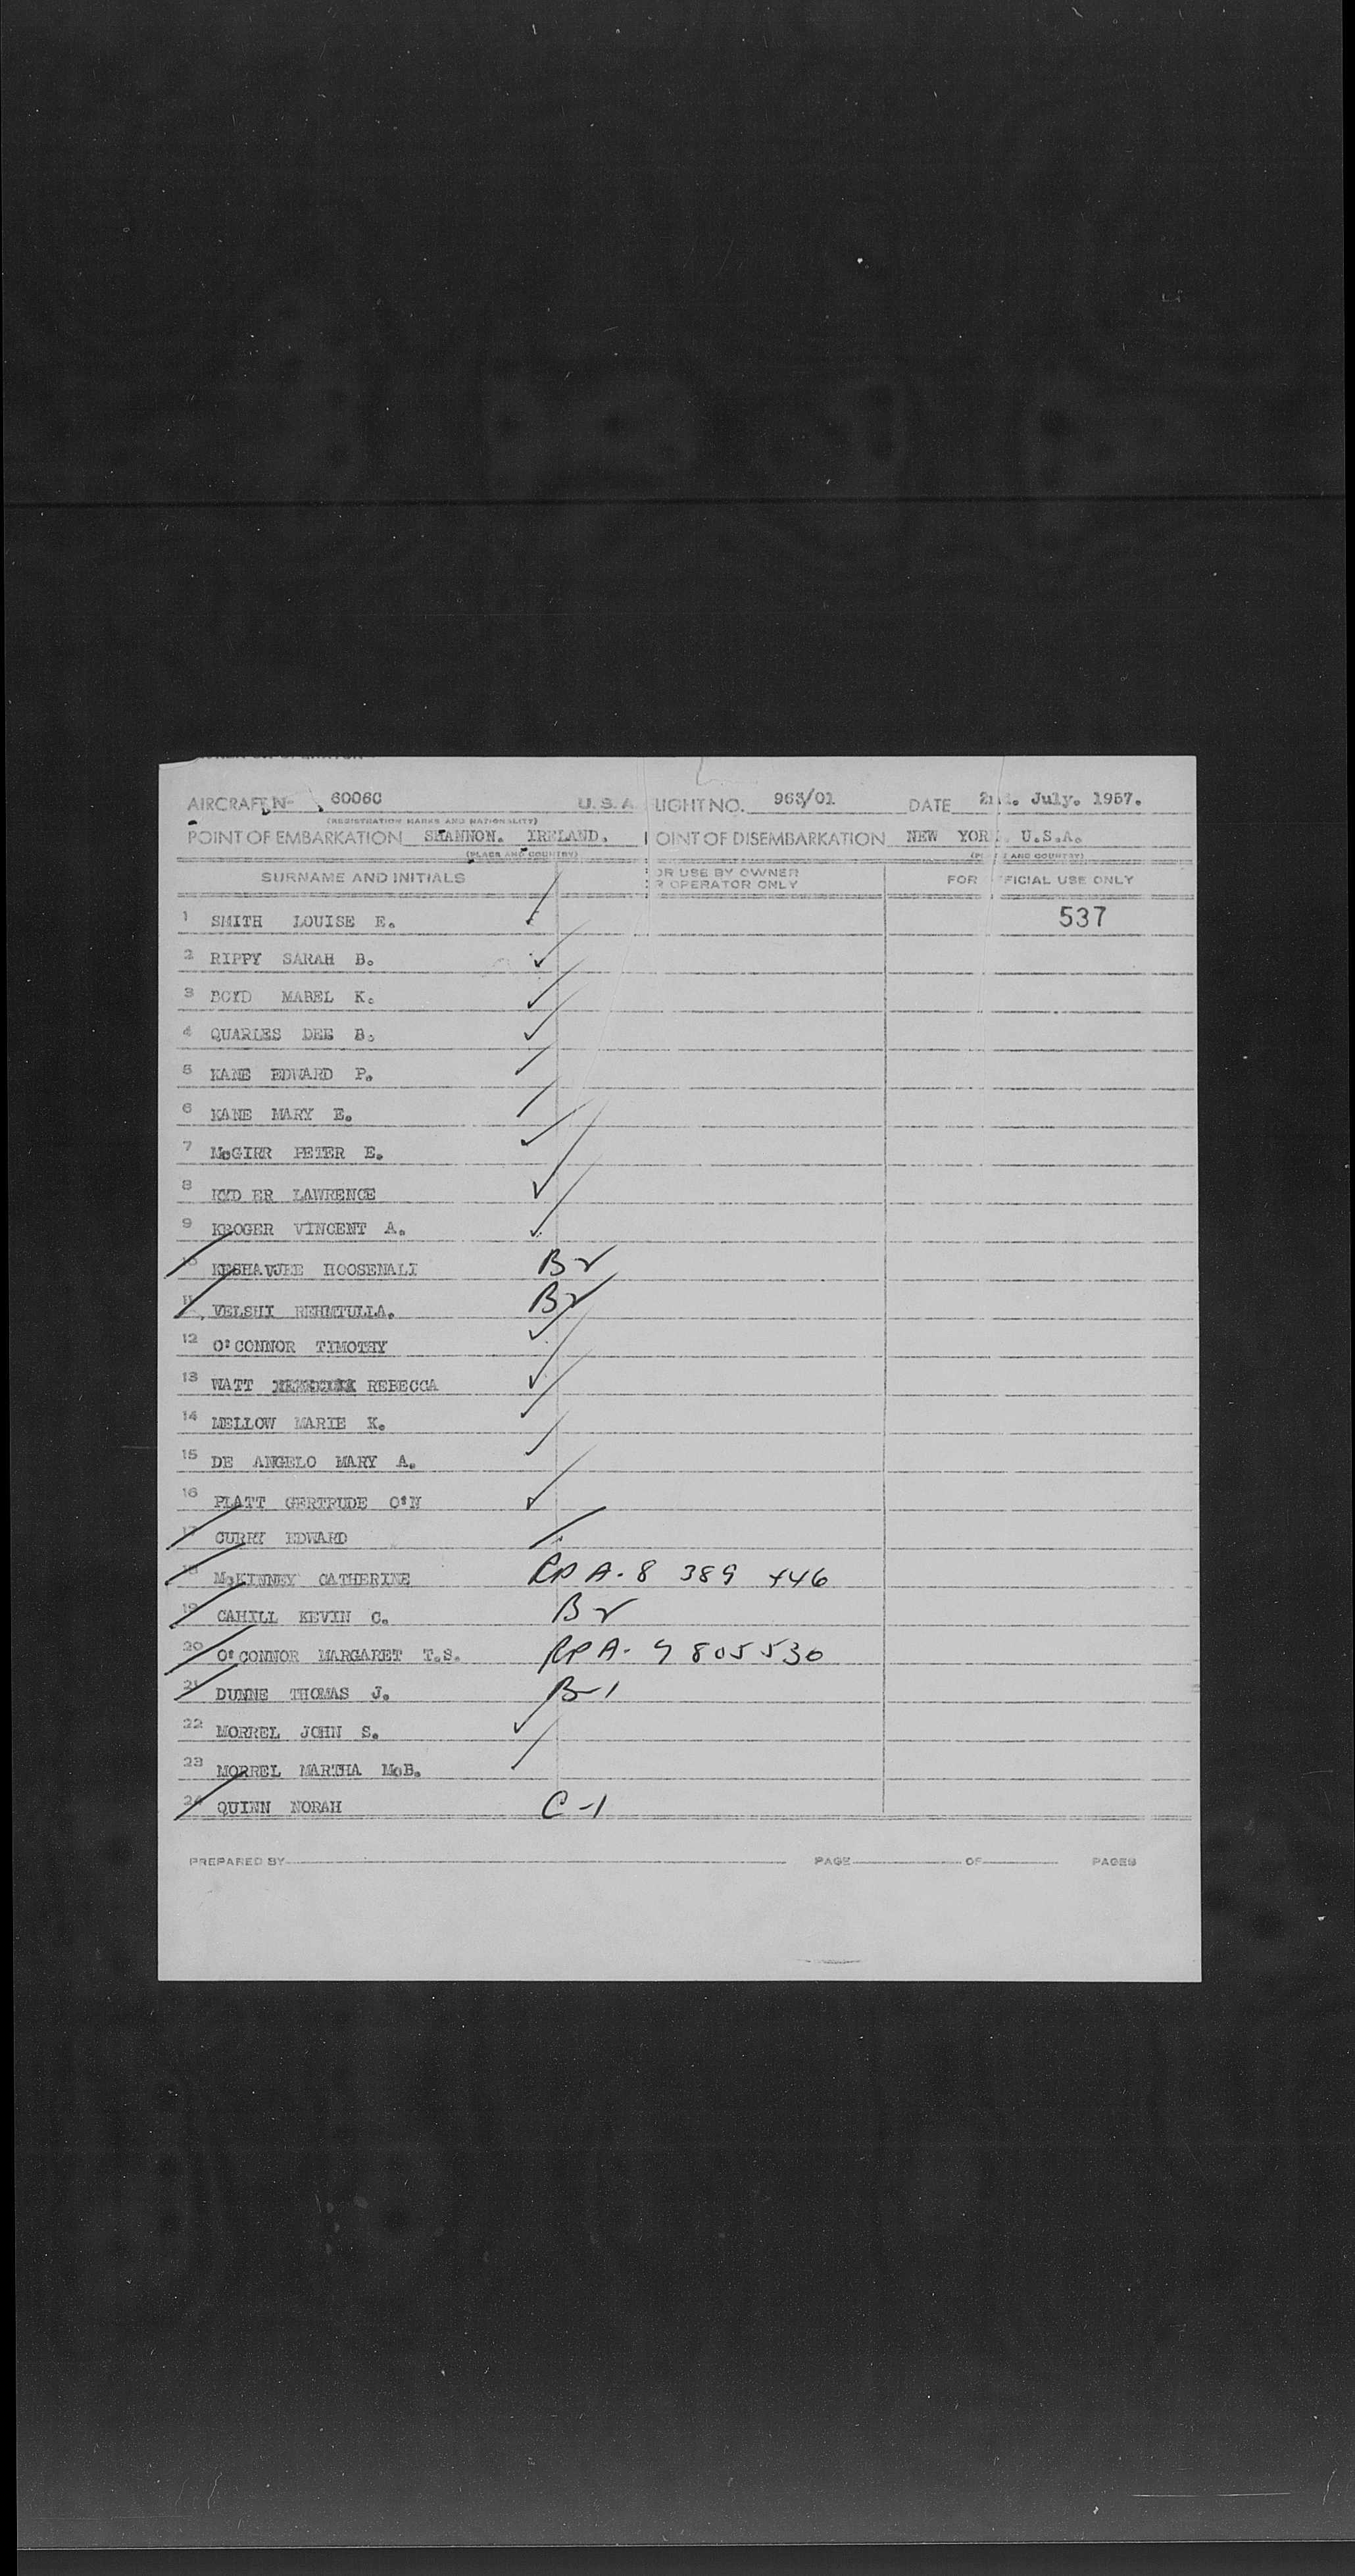 AIRCRAFT N- 6006C U.S.A LIGHT NO. 963/01 DATE 2nd. July. 1957.
(REGISTRATION MARKS AND NATIONALITY)
POINT OF EMBARKATION SHANNON. IRELAND. OINT OF DISEMBARKATION NEW YORK. U.S.A.
(PLACE AND COUNTRY) (PLACE AND COUNTRY)
SURNAME AND INITIALS OR USE BY OWNER R OPERATOR ONLY FOR FFICIAL USE ONLY
1 SMITH LOUISE E. 537
2 RIPPY SARAH B.
3 BOYD MABEL K.
4 QUARLES DEE B.
5 KANE EDWARD P.
6 KANE MARY E.
7 McGIRR PETER E.
8 RYD ER LAWRENCE
9 KROGER VINCENT A.
10 KESHAVJEE ROOSENALI B2
11 VELSHI REHMTULLA. B2
12 O'CONNOR TIMOTHY
13 WATT REBECCA
14 MELLOW MARIE K.
15 DE ANGELO MARY A.
16 PLATT GERTRUDE O'N
17 CURRY EDWARD
18 McKINNEY CATHERINE RP A-8 389 446
19 CAHILL KEVIN C. B2
20 O'CONNOR MARGARET T.S. RP A-9 805530
21 DUNNE THOMAS J. B-1
22 MORREL JOHN S.
23 MORREL MARTHA McB.
24 QUINN NORAH C-1
PREPARED BY PAGE OF PAGES